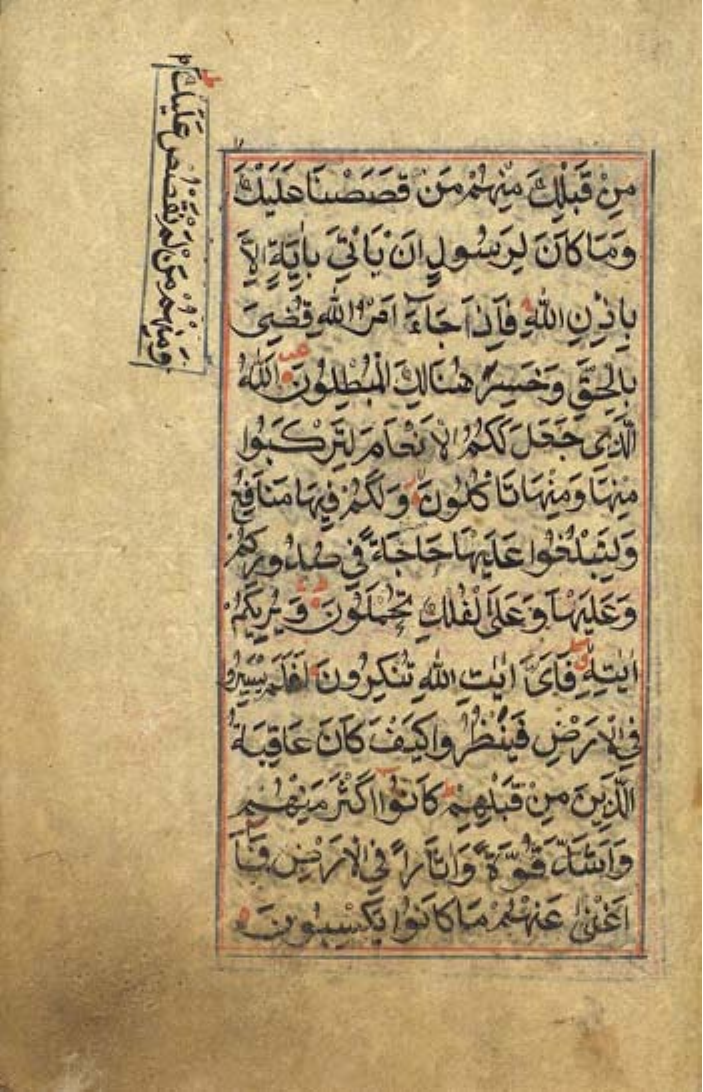 مِنْ قَبْلِكَ مِنْهُمْ مَنْ قَصَصْنَا عَلَيْكَ
وَمِنْهُمْ مَنْ لَمْ نَقْصُصْ عَلَيْكَ
وَمَا كَانَ لِرَسُولٍ اَنْ يَاْتِىَ بِاٰيَةٍ اِلَّا
بِاِذْنِ اللّٰهِ فَاِذَا جَاءَ اَمْرُ اللّٰهِ قُضِىَ
بِالْحَقِّ وَخَسِرَ هُنَالِكَ الْمُبْطِلُونَ اَللّٰهُ
الَّذِى جَعَلَ لَكُمُ الْاَنْعَامَ لِتَرْكَبُوا
مِنْهَا وَمِنْهَا تَاْكُلُونَ وَلَكُمْ فِيهَا مَنَافِعُ
وَلِتَبْلُغُوا عَلَيْهَا حَاجَةً فِى صُدُورِكُمْ
وَعَلَيْهَا وَعَلَى الْفُلْكِ تُحْمَلُونَ وَيُرِيكُمْ
اٰيٰتِهٖ فَاَىَّ اٰيٰتِ اللّٰهِ تُنْكِرُونَ اَفَلَمْ يَسِيرُوا
فِى الْاَرْضِ فَيَنْظُرُوا كَيْفَ كَانَ عَاقِبَةُ
الَّذِينَ مِنْ قَبْلِهِمْ كَانُوا اَكْثَرَ مِنْهُمْ
وَاَشَدَّ قُوَّةً وَاٰثَارًا فِى الْاَرْضِ فَمَا
اَغْنٰى عَنْهُمْ مَا كَانُوا يَكْسِبُونَ